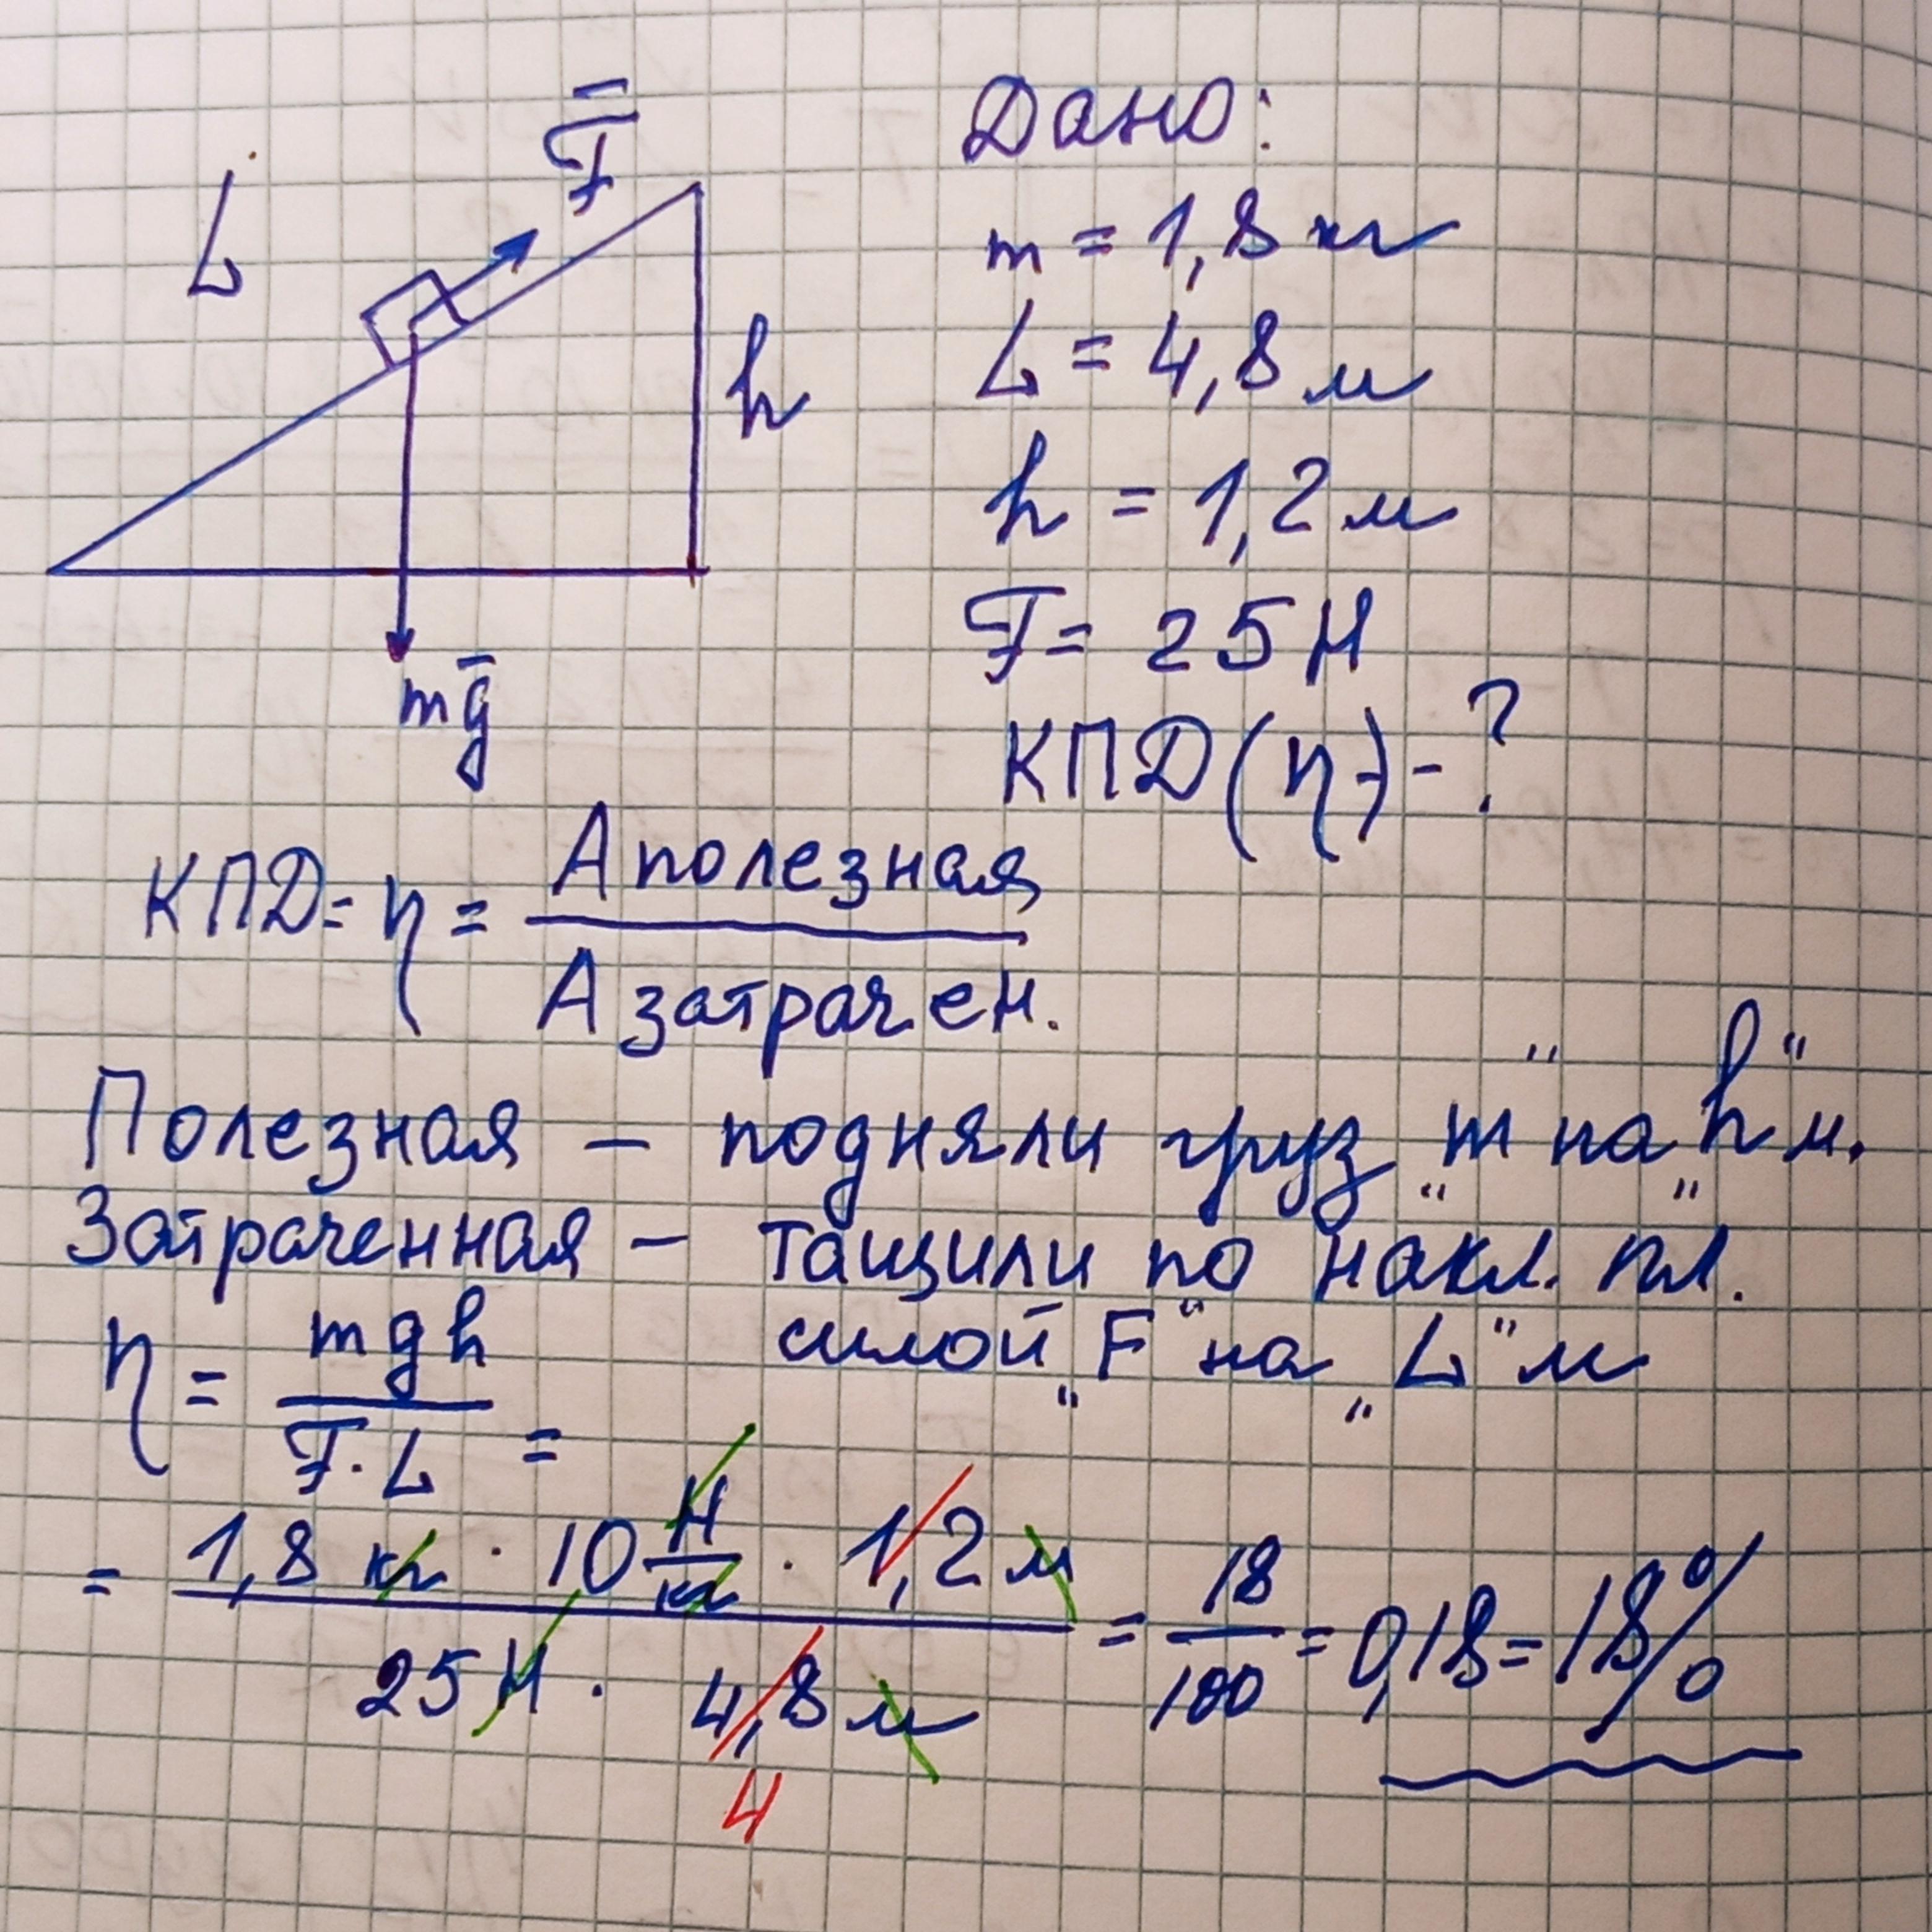 F̅
L
h
mg̅
Дано:
m = 1,8 кг
L = 4,8 м
h = 1,2 м
F = 25 Н
КПД (η) - ?
КПД = η = A полезная / A затрачен.
Полезная – подняли груз "m" на "h" м.
Затраченная – тащили по накл. пл.
силой „F" на „L" м
η = mgh / F · L =
= 1,8 кг · 10 Н/кг · 1,2 м / 25 Н · 4,8 м = 18/100 = 0,18 = 18%
4